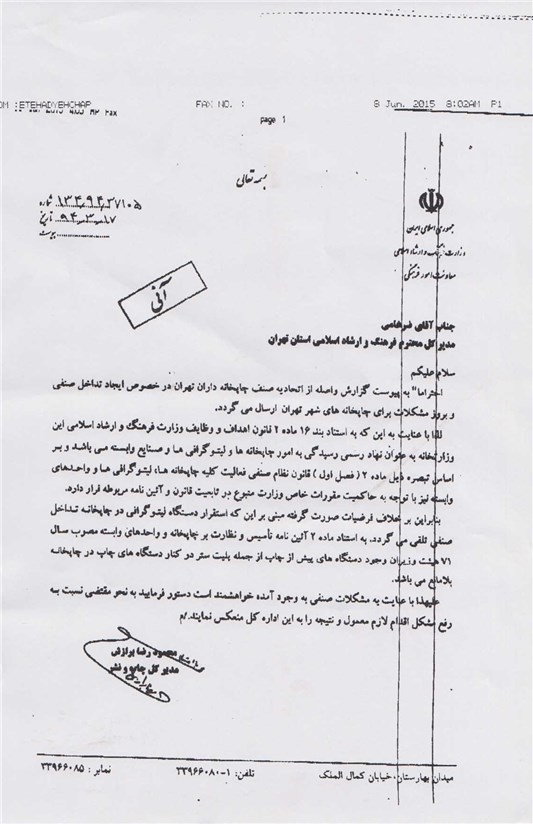 OM :ETEHADYEHCHAP FAX NO. : 8 Jun. 2015 8:02AM P1
page 1
بسمه تعالی
شماره ۱۳۴،۹۴،۳۷۱۰۵
تاریخ ۹۴،۳،۱۷
پیوست
جمهوری اسلامی ایران
وزارت فرهنگ و ارشاد اسلامی
معاونت امور فرهنگی
آنی
جناب آقای فرهامی
مدیر کل محترم فرهنگ و ارشاد اسلامی استان تهران
سلام علیکم
احتراما" به پیوست گزارش واصله از اتحادیه صنف چاپخانه داران تهران در خصوص ایجاد تداخل صنفی
و بروز مشکلات برای چاپخانه های شهر تهران ارسال می گردد.
لذا با عنایت به این که به استناد بند ۱۶ ماده ۲ قانون اهداف و وظایف وزارت فرهنگ و ارشاد اسلامی این
وزارتخانه به عنوان نهاد رسمی رسیدگی به امور چاپخانه ها و لیتوگرافی ها و صنایع وابسته می باشد و بر
اساس تبصره ذیل ماده ۲ (فصل اول) قانون نظام صنفی فعالیت کلیه چاپخانه ها، لیتوگرافی ها و واحدهای
وابسته نیز با توجه به حاکمیت مقررات خاص وزارت متبوع در تابعیت قانون و آئین نامه مربوطه قرار دارد.
بنابراین بر خلاف فرضیات صورت گرفته مبنی بر این که استقرار دستگاه لیتوگرافی در چاپخانه تداخل
صنفی تلقی می گردد. به استناد ماده ۲ آئین نامه تأسیس و نظارت بر چاپخانه و واحدهای وابسته مصوب سال
۷۱ هیئت وزیران وجود دستگاه های پیش از چاپ از جمله پلیت ستر در کنار دستگاه های چاپ در چاپخانه
بلامانع می باشد.
علیهذا با عنایت به مشکلات صنفی به وجود آمده خواهشمند است دستور فرمایید به نحو مقتضی نسبت به
رفع مشکل اقدام لازم معمول و نتیجه را به این اداره کل منعکس نمایند./م
محمود رضا برازش
مدیر کل چاپ و نشر
میدان بهارستان، خیابان کمال الملک تلفن: ۱-۳۳۹۶۶۰۸۰ نمابر : ۳۳۹۶۶۰۸۵